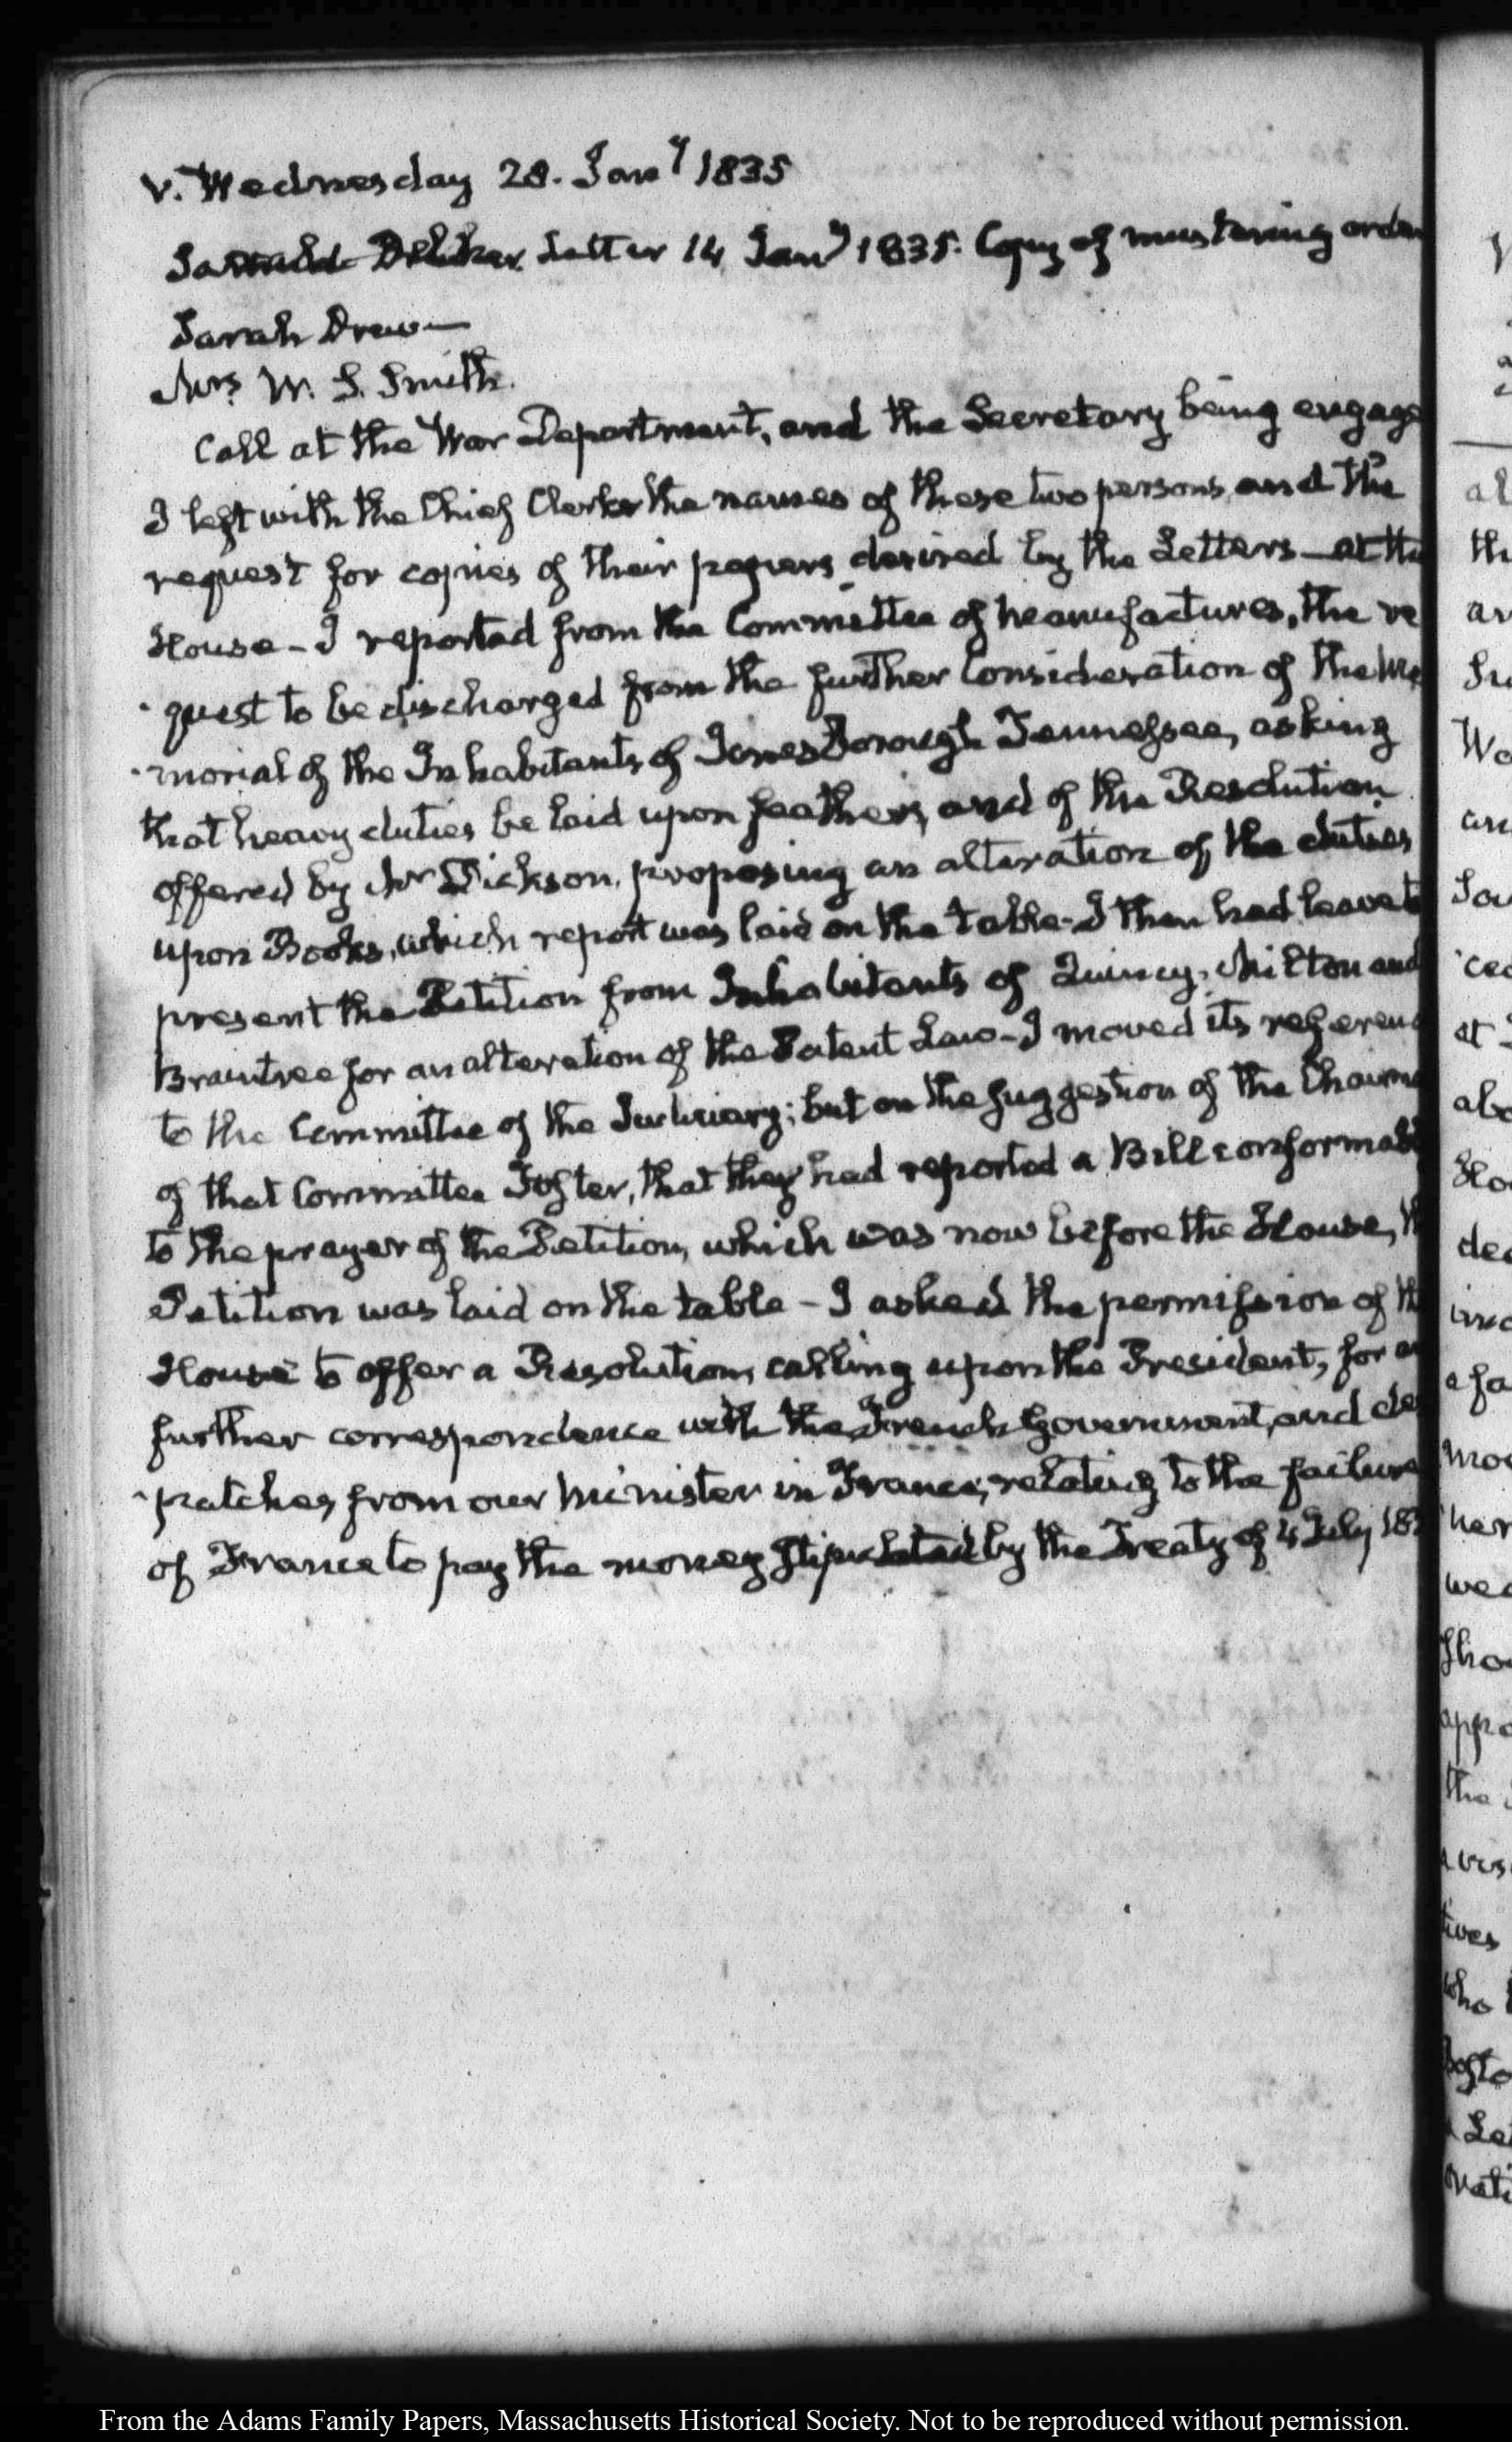 V. Wednesday 28. Jany 1835
Letter 14 Jany 1835. Copy of mustering order
Sarah Drew—
Mrs W. S. Smith.
Call at the War Department, and the Secretary being engage
I left with the Chief Clerk the names of these two persons, and the
request for copies of their papers desired by the Letters—at the
House—I reported from the Committee of Manufactures, the re
quest to be discharged from the further Consideration of the Me
morial of the Inhabitants of Jonesborough Tennessee, asking
that heavy duties be laid upon feathers, and of the Resolution
offered by Mr Dickson, proposing an alteration of the duties
upon Books, which report was laid on the table—I then had leave to
present the Petition from Inhabitants of Quincy, Milton and
Braintree for an alteration of the Patent Law—I moved its referenc
to the Committee of the Judiciary; but on the suggestion of the Chairma
of that Committee Foster, that they had reported a Bill conformabl
to the prayer of the Petition, which was now before the House, th
Petition was laid on the table—I asked the permission of th
House to offer a Resolution, calling upon the President, for an
further correspondence with the French Government, and des
patches from our Minister in France, relating to the failure
of France to pay the money stipulated by the Treaty of 4 July 183
From the Adams Family Papers, Massachusetts Historical Society. Not to be reproduced without permission.